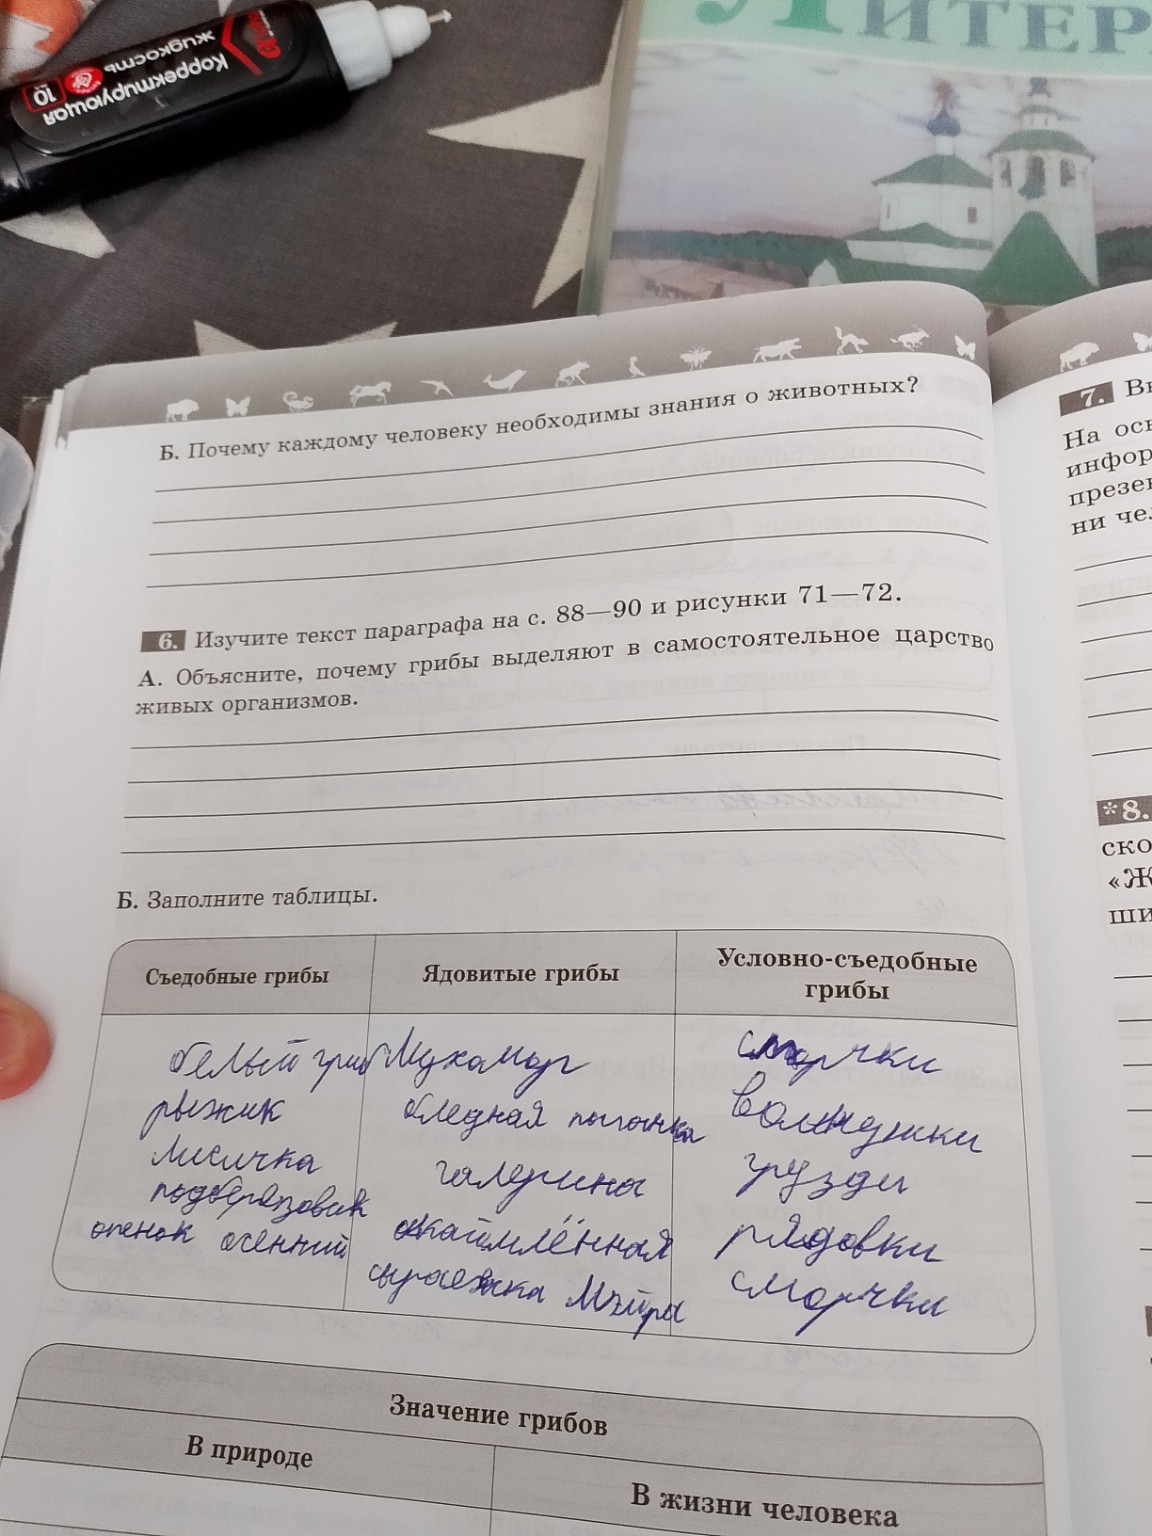 Корректирующая
жидкость
10
ЛИТЕР
Б. Почему каждому человеку необходимы знания о животных?
6. Изучите текст параграфа на с. 88—90 и рисунки 71—72.
А. Объясните, почему грибы выделяют в самостоятельное царство
живых организмов.
Б. Заполните таблицы.
Съедобные грибы
Ядовитые грибы
Условно-съедобные
грибы
белый гриб
рыжик
лисичка
подберёзовик
опенок осенний
Мухомор
бледная поганка
галерина
окаймлённая
сыроежка Мэйра
сморчки
волнушки
грузди
рядовки
сморчки
Значение грибов
В природе
В жизни человека
7. Вы
На осн
инфор
презен
ни чел
*8.
ско
«Ж
ши